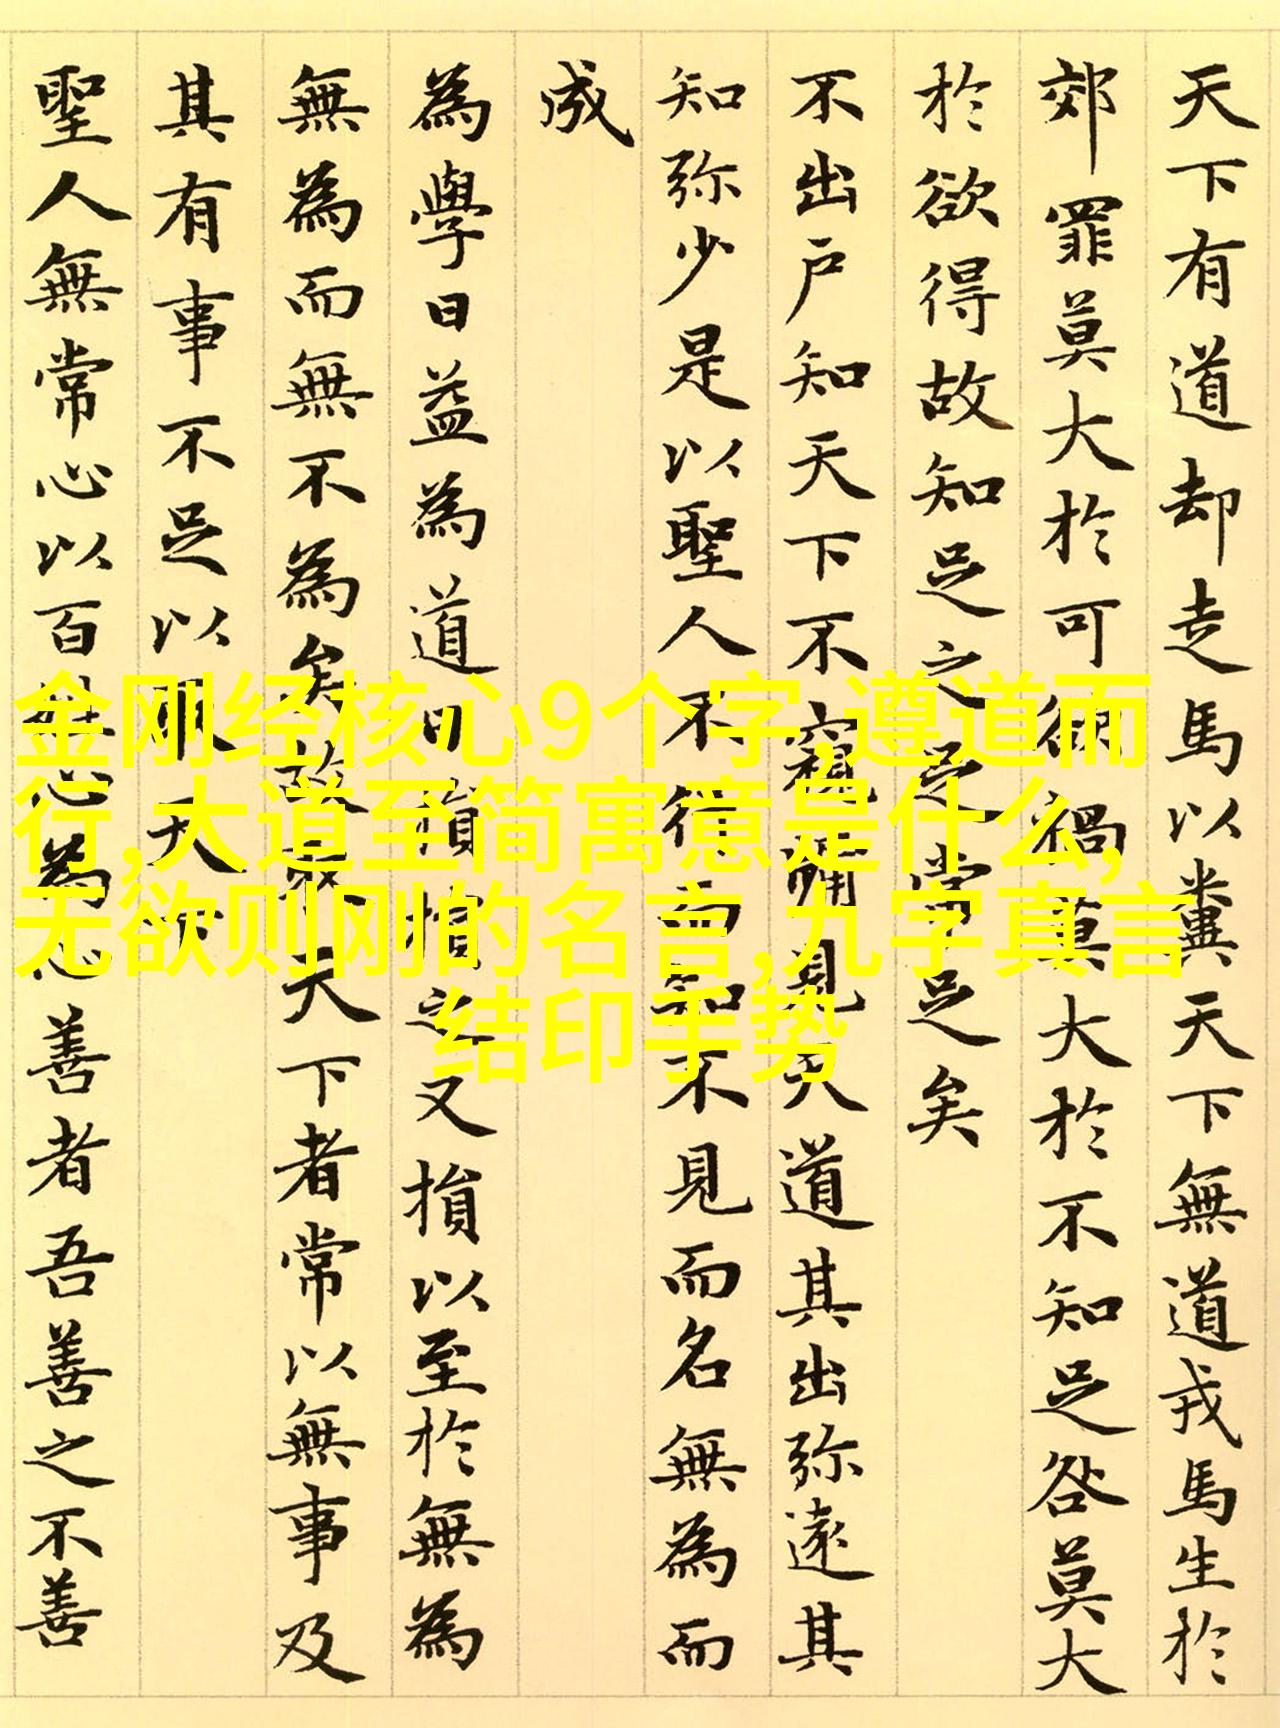 天下有道却走馬以糞天下無道戎馬生於
郊罪莫大於可欲禍莫大於不知足咎莫大
於欲得故知足之足常足矣
不出户知天下不窺牖見天道其出弥遠其
知弥少是以聖人不行而知不見而名無為而
成
為學日益為道日損損之又損以至於無為
無為而無不為矣故取天下者常以無事及
其有事不足以取天下
聖人無常心以百姓心為心善者吾善之不善
金刚经核心9个字,遵道而
行,大道至简寓意是什么,
无欲则刚的名言,九字真言
结印手势